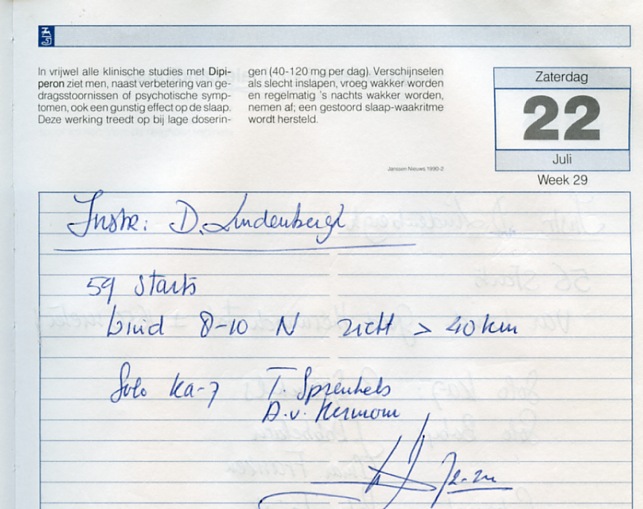 In vrijwel alle klinische studies met Dipi-
peron ziet men, naast verbetering van ge-
dragsstoornissen of psychotische symp-
tomen, ook een gunstig effect op de slaap.
Deze werking treedt op bij lage doserin-
gen (40-120 mg per dag). Verschijnselen
als slecht inslapen, vroeg wakker worden
en regelmatig 's nachts wakker worden,
nemen af; een gestoord slaap-waakritme
wordt hersteld.
Janssen Nieuws 1990-2
Zaterdag
22
Juli
Week 29
Instr: D. Lindenbergh
59 starts
wind 8-10 N zicht > 40 km
Solo Ka-7 T. Sprenkels
A.v.